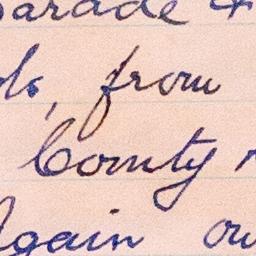 parade &
from
County
Again